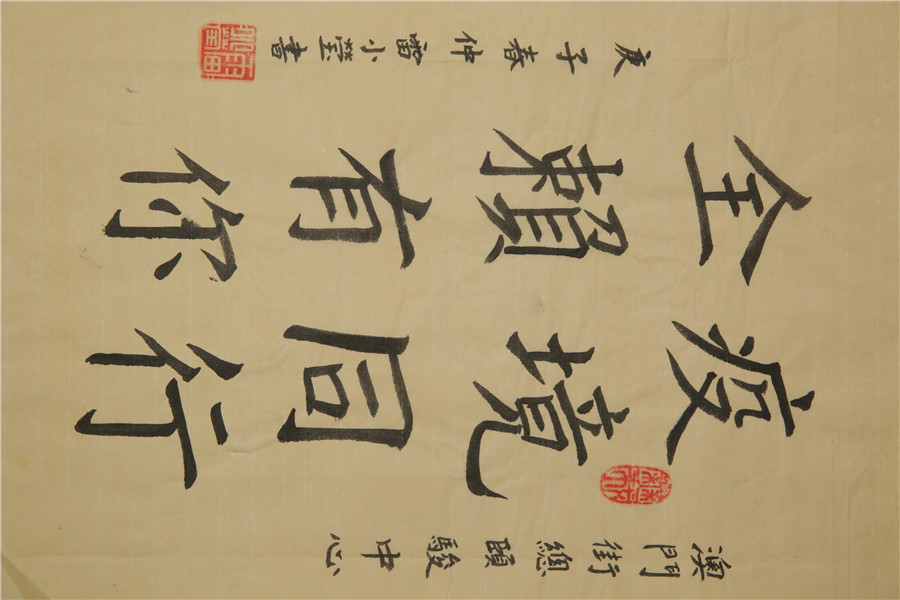 澳門街總頤駿中心
疫境同行
全賴有你
庚子春仲雷小瑩書